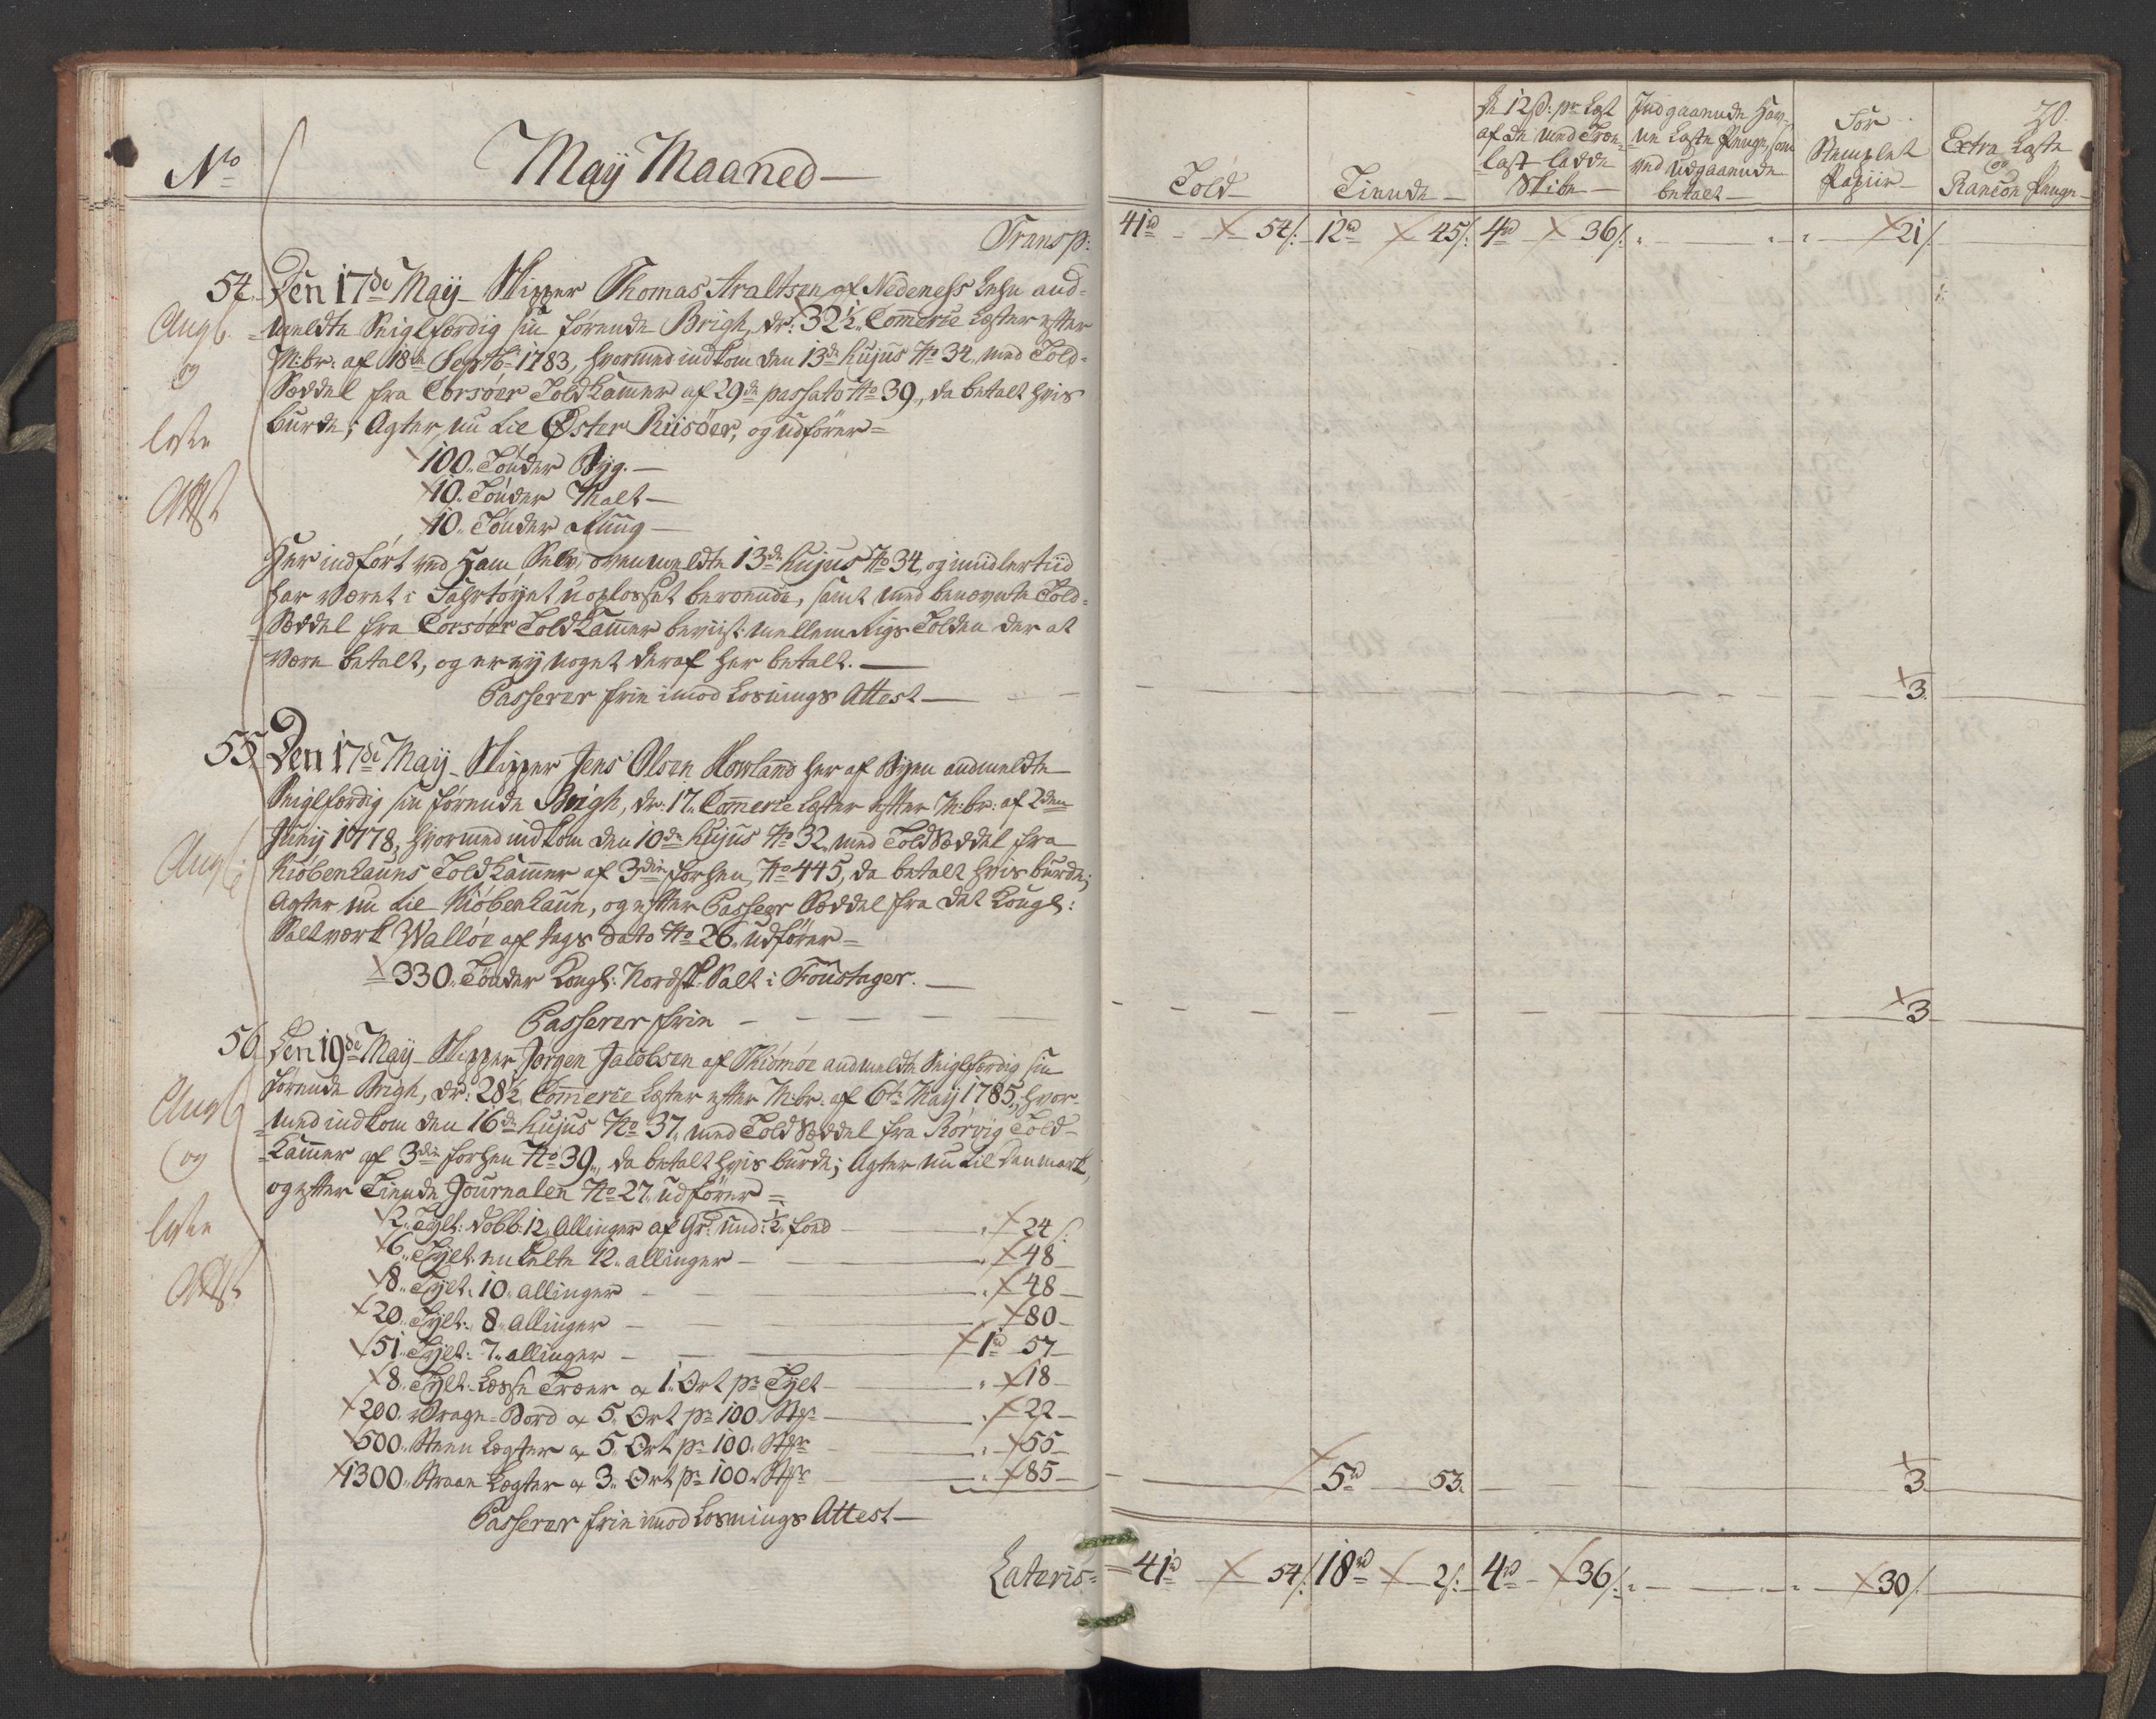 No
Maij Maaned
Transp:
54. Den 17de Maij Skipper Thomas Araltsen af Nedeness Lehn and-
meldte Seiglfærdig sin førende Brigh, dr: 32½ Commerce Læster efter
M:br: af 18de Septbr 1783, hvormed indkom den 13de hujus No 34, med Told-
Sæddel fra Corsøer Toldkammer af 29de passato No 39, da betalt hvis
burde; Agter nu til Øster Riisøer, og udfører=
100. Tønder Byg.
10. Tønder Malt
10. Tønder Ruug
Her indført ved Ham Selv, ovenmeldte 13de hujus No 34, og imidlertiid
har været i Fahrtøyet uoplosset beroende, samt med benævnte Told-
Sæddel fra Corsøer Toldkammer beviist mellemrigs Tolden der at
være betalt, og er ey noget deraf her betalt.
Passerer frie imod Losnings Attest
55. Den 17de Maij Skipper Jens Olsen Howland her af Byen andmeldte
Seiglfærdig sin førende Brigh, dr: 17. Commerce Læster efter M:br: af 2den
Junij 1778, hvormed indkom den 10de hujus No 32, med Told Sæddel fra
Kiøbenhauns Toldkammer af 3die forhen, No 445, da betalt hvis burde;
Agter nu til Kiøbenhaun, og efter Passeer Sæddel fra det Kongl:
Saltværk Walløe af Dags dato No 26. udfører=
330. Tønder Kongl: Nordsk Salt i Foustager.
Passerer frie
56. Den 19de Maij Skipper Jørgen Jacobsen af andmeldte Seiglfærdig sin
førende Brigh, dr: 28½ Commerce Læster efter M:br: af 6te Maij 1785, hvor-
med indkom den 16de hujus No 37, med Told Sæddel fra Rørvig Told-
Kammer af 3die forhen No 39, da betalt hvis burde; Agter nu til Danmark,
og efter Tiende Journalen No 27. udfører=
2. Tylt: dobb: 12. Allinger af Gr: und: ½ foed " 24 /:
6. Tylt: enkelte 12. allinger " 48
8. Tylt: 10. allinger " 48
20. Tylt: 8. allinger 80
51. Tylt: 7. allinger 1rd 57
8. Tylt: Læsse Træer a 1. Ort pr Tylt " 18
200. Vrage-Bord a 5. Ort pr 100. Stkr " 22
500. Steen Lægter a 5. Ort pr 100. Stkr " 55
1300. Straae Lægter a 3. Ort pr 100. Stkr " 85
Passerer frie imod Losnings Attest
Lateris=
Angb.
og
løste
Attest
Angb.
Angb
og
løste
Attest
20.
Told
Tiende
De 12 s: pr Læst
af de med Træe
last ladde
Skibe
Indgaaende Hav-
ne Læste Penge, som
ved udgaaende
betalt
For
Stemplet
Papiir
Extra Læste
og
Rançon Penge
41rd 54/: 12rd 45/: 4rd 36/: " " " 21/
3.
3
5rd 53. 3
41rd 54/: 18rd 2/: 4rd 36/: " " " 30/